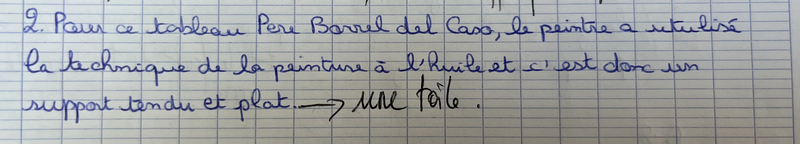 2. Pour ce tableau Pere Borrel del Caso, le peintre a utulisé
la technique de la peinture à l'huile et c'est donc un
support tendu et plat. → une toile.